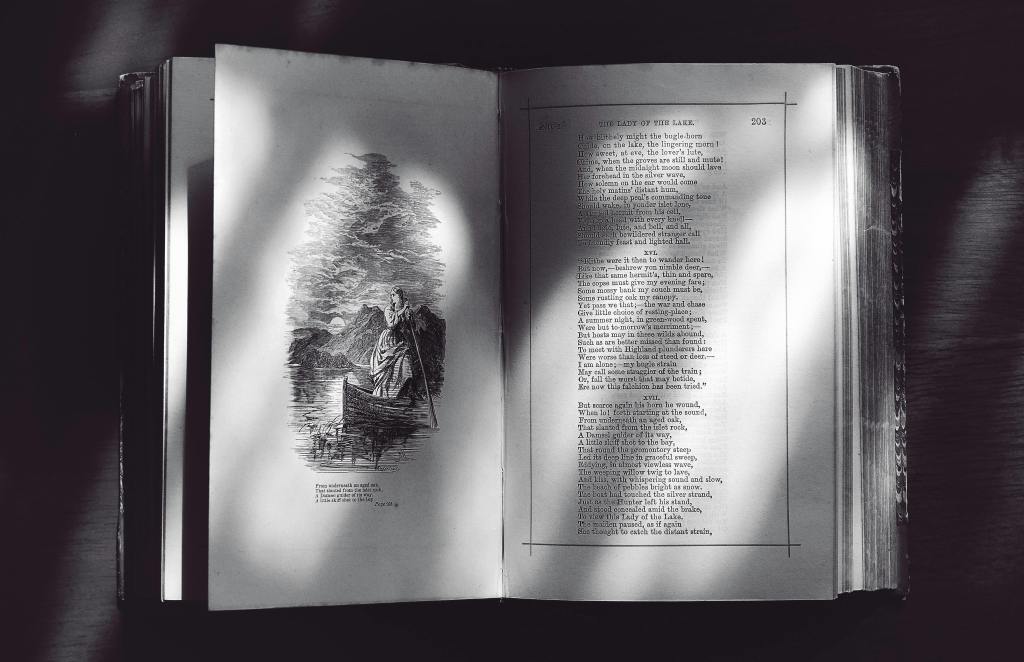 From underneath an aged oak,
That slanted from the islet rock,
A Damsel guider of its way,
A little skiff shot to the bay
Page
THE LADY OF THE LAKE.
203
How blithely might the bugle-horn
Chide, on the lake, the lingering morn!
How sweet, at eve, the lover's lute,
Chime, when the groves are still and mute!
And, when the midnight moon should lave
Her forehead in the silver wave,
How solemn on the ear would come
The holy matins' distant hum,
While the deep peal's commanding tone
Should wake, in yonder islet lone,
A sainted hermit from his cell,
To drop a bead with every knell—
And bugle, lute, and bell, and all,
Should each bewildered stranger call
To friendly feast and lighted hall.
XVI.
"Blithe were it then to wander here!
But now,—beshrew yon nimble deer,—
Like that same hermit's, thin and spare,
The copse must give my evening fare;
Some mossy bank my couch must be,
Some rustling oak my canopy.
Yet pass we that;—the war and chase
Give little choice of resting-place;
A summer night, in green-wood spent,
Were but to-morrow's merriment;—
But hosts may in these wilds abound,
Such as are better missed than found:
To meet with Highland plunderers here
Were worse than loss of steed or deer.—
I am alone;—my bugle strain
May call some straggler of the train;
Or, fall the worst that may betide,
Ere now this falchion has been tried."
XVII.
But scarce again his horn he wound,
When lo! forth starting at the sound,
From underneath an aged oak,
That slanted from the islet rock,
A Damsel guider of its way,
A little skiff shot to the bay,
That round the promontory steep
Led its deep line in graceful sweep,
Eddying, in almost viewless wave,
The weeping willow twig to lave,
And kiss, with whispering sound and slow,
The beach of pebbles bright as snow.
The boat had touched the silver strand,
Just as the Hunter left his stand,
And stood concealed amid the brake,
To view this Lady of the Lake.
The maiden paused, as if again
She thought to catch the distant strain,